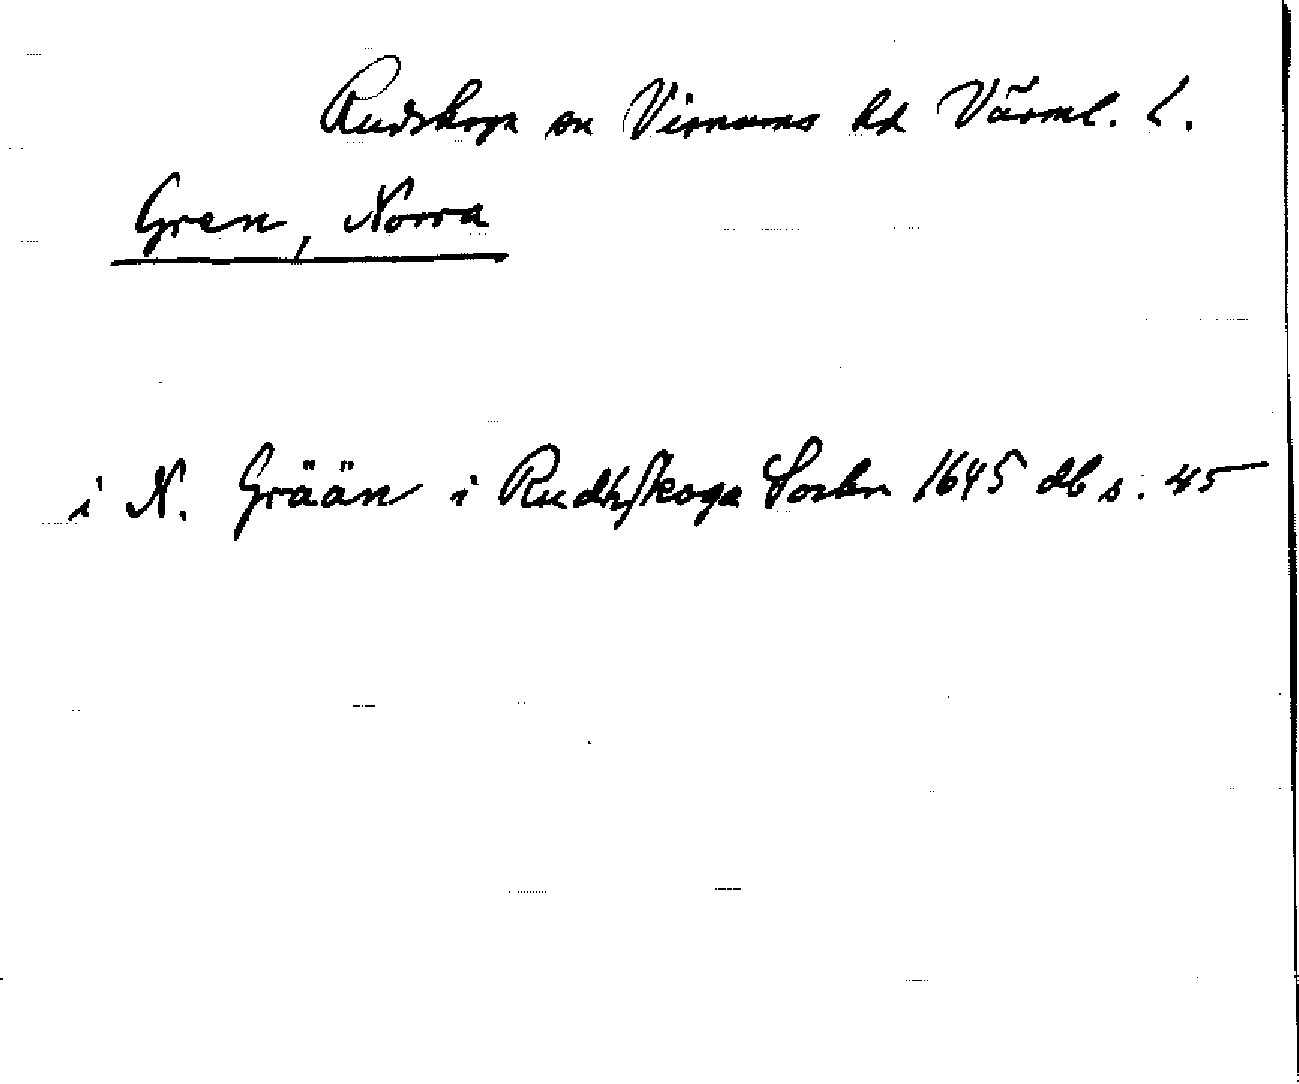 Rudskoga sn Visnums hd Värml. l.
Gren, Norra
i N. Grään i Rudhskoga Sockn 1645 db s. 45